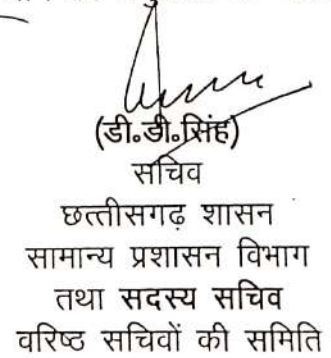 (डी॰डी॰सिंह)
सचिव
छत्तीसगढ़ शासन
सामान्य प्रशासन विभाग
तथा सदस्य सचिव
वरिष्ठ सचिवों की समिति